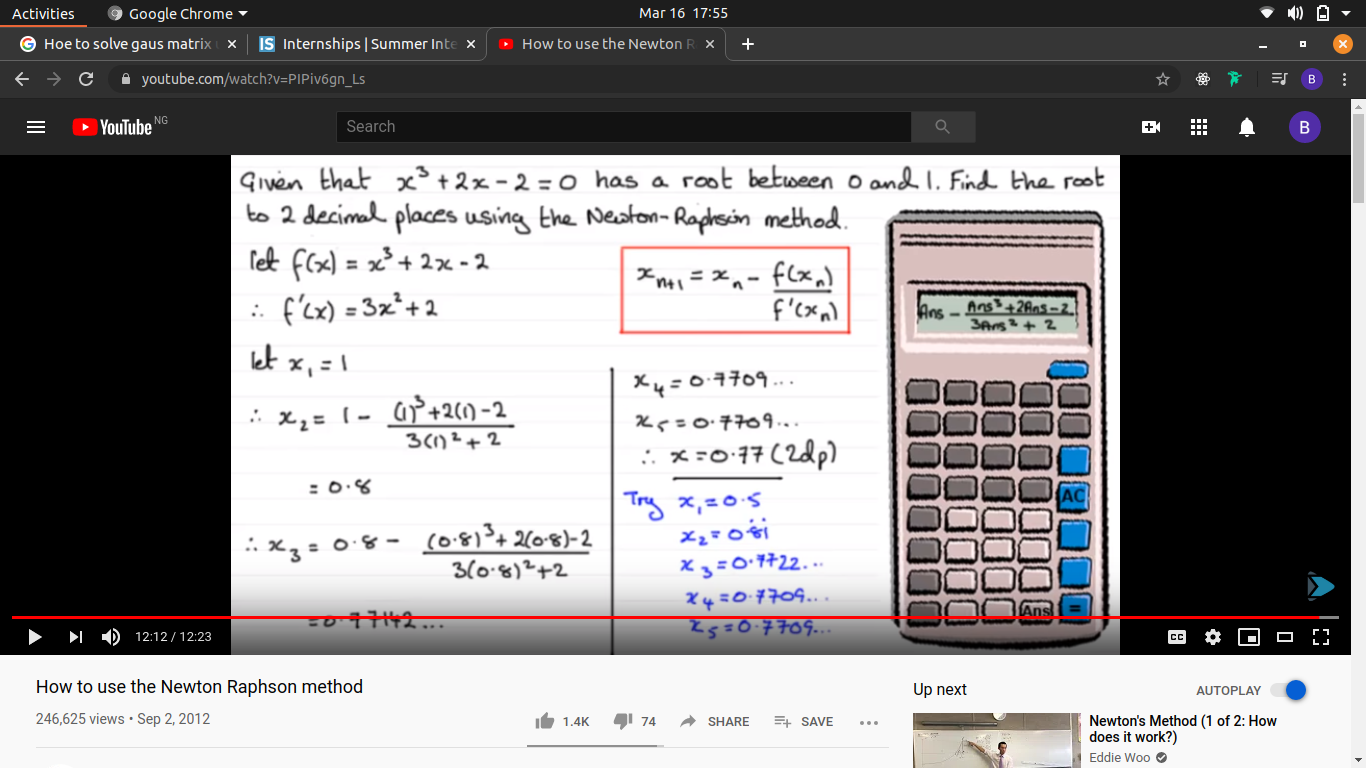 Activities Google Chrome Mar 16 17:55
Hoe to solve gaus matrix Internships | Summer Inte How to use the Newton R
youtube.com/watch?v=PIPiv6gn_Ls B
YouTube NG Search B
Given that x³ + 2x - 2 = 0 has a root between 0 and 1. Find the root
to 2 decimal places using the Newton-Raphson method.
let f(x) = x³ + 2x - 2
∴ f'(x) = 3x² + 2
let x₁ = 1
∴ x₂ = 1 - (1)³+2(1)-2 / 3(1)²+2
= 0.8
∴ x₃ = 0.8 - (0.8)³+2(0.8)-2 / 3(0.8)²+2
= 0.77142...
xₙ₊₁ = xₙ - f(xₙ) / f'(xₙ)
x₄ = 0.7709...
x₅ = 0.7709...
∴ x = 0.77 (2dp)
Try x₁ = 0.5
x₂ = 0.8̇1̇
x₃ = 0.7722...
x₄ = 0.7709...
x₅ = 0.7709...
Ans - Ans³+2Ans-2 / 3Ans²+2
AC
Ans =
12:12 / 12:23 CC
How to use the Newton Raphson method
246,625 views • Sep 2, 2012 1.4K 74 SHARE SAVE
Up next AUTOPLAY
Newton's Method (1 of 2: How
does it work?)
Eddie Woo